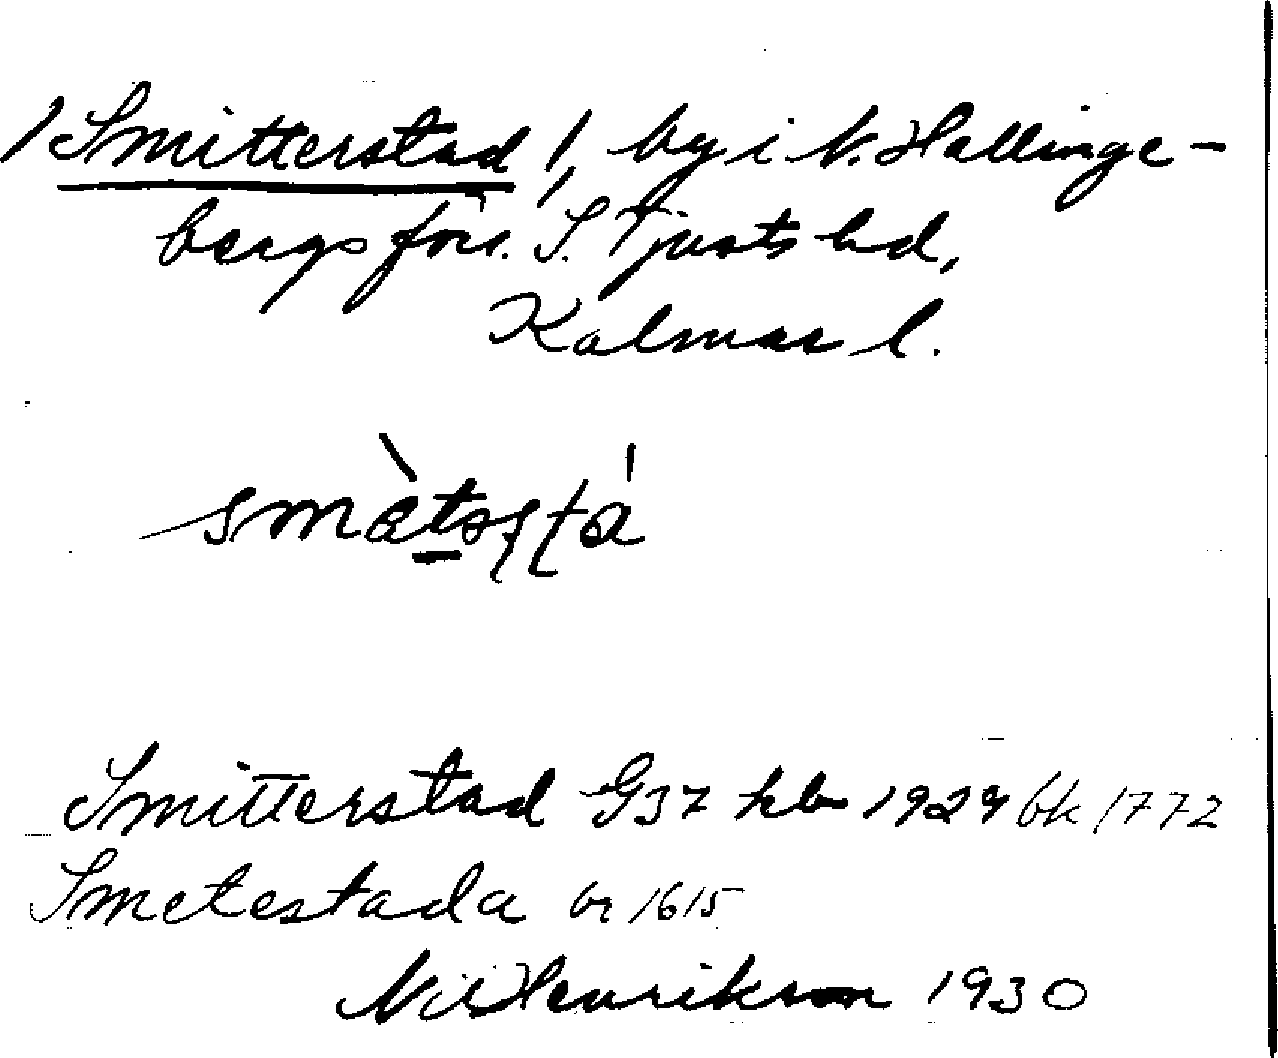 /Smitterstad/, by i N. Hallinge-
bergs förs. S. Tjusts hd,
Kalmar l.
smètəsta
Smitterstad G37 hb 1929 bk 1772
Smetestada br 1615
Nils Henrikson 1930